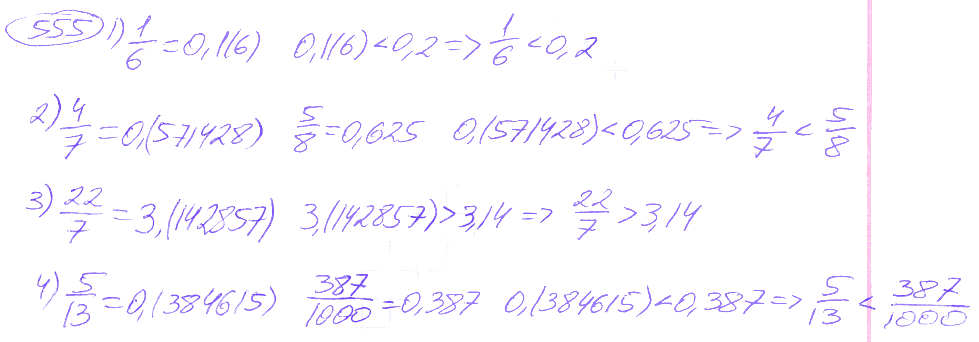 555 1) 1/6 = 0,1(6) 0,1(6) < 0,2 => 1/6 < 0,2
2) 4/7 = 0,(571428) 5/8 = 0,625 0,(571428) < 0,625 => 4/7 < 5/8
3) 22/7 = 3,(142857) 3,(142857) > 3,14 => 22/7 > 3,14
4) 5/13 = 0,(384615) 387/1000 = 0,387 0,(384615) < 0,387 => 5/13 < 387/1000